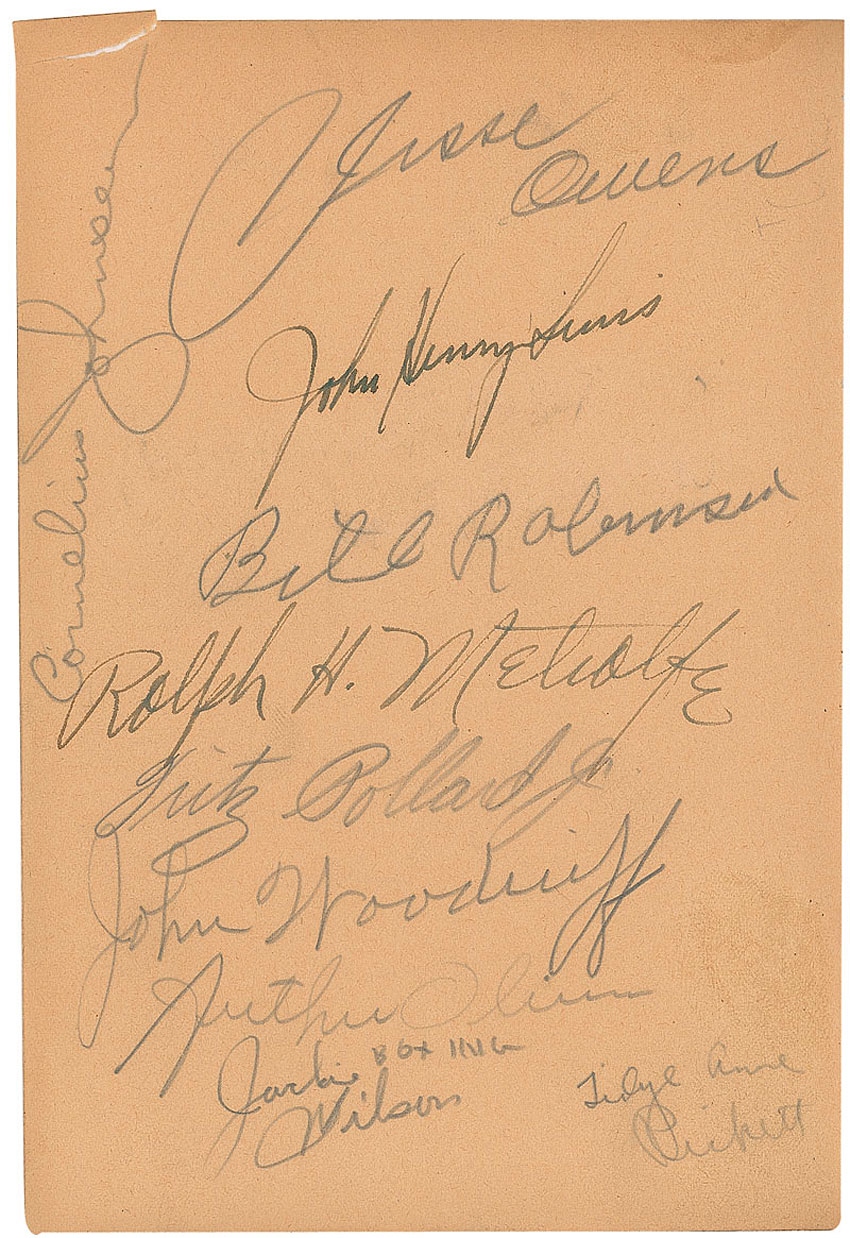 Jesse
Owens
John Henry Lewis
Bill Robinson
Ralph H. Metcalfe
Fritz Pollard Jr
John Woodruff
Arthur Oliver
Jackie BOXING
Wilson
Tidye Anne
Pickett
Cornelius Johnson